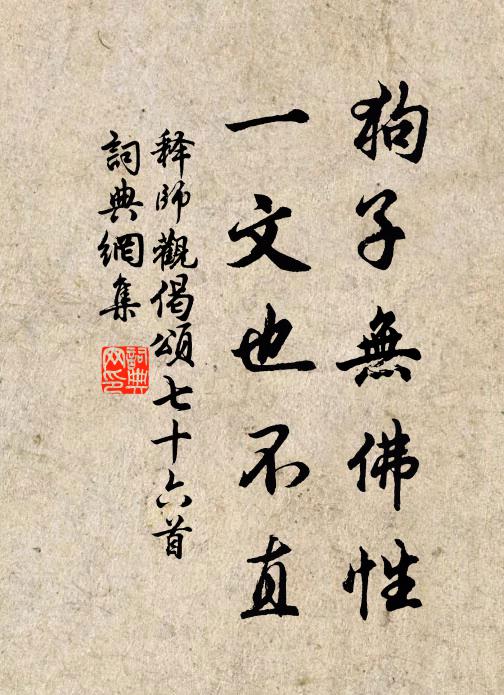 狗子無佛性
一文也不直
释師觀偈頌七十六首
詞典網集
詞典网印